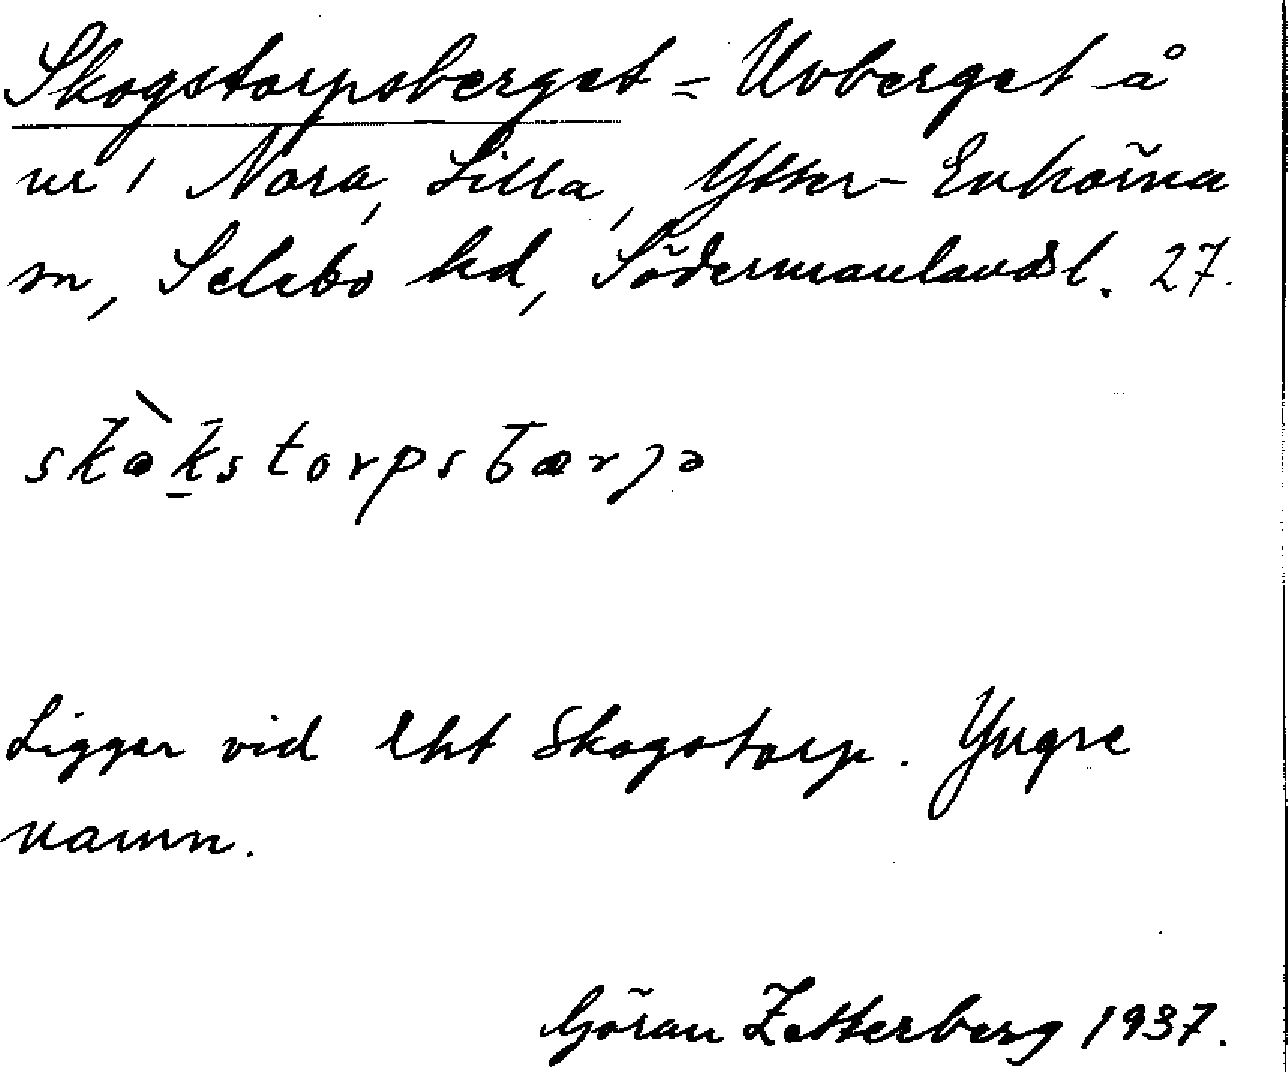 Skogstorpsberget = Uvberget å
nr 1 Nora, Lilla, Ytter-Enhörna
sn, Selebo hd, Södermanlandsl. 27.
skò̀kstorpsbærjə
Ligger vid lht Skogstorp. Yngre
namn.
Göran Zetterberg 1937.